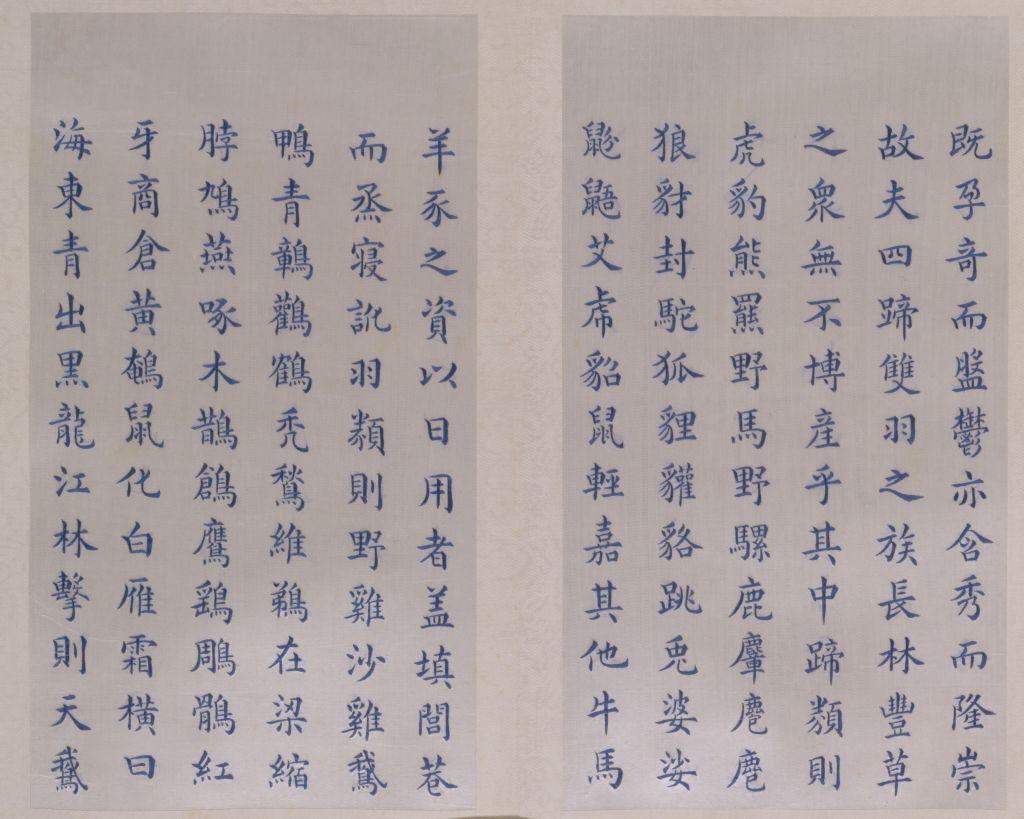 既孕奇而盤鬱亦含秀而隆崇
故夫四蹄雙羽之族長林豐草
之衆無不博産乎其中蹄類則
虎豹熊羆野馬野騾鹿麞麅麀
狼豺封駝狐貍貛貉跳兎婆娑
鼢鼯艾虎貂鼠輕嘉其他牛馬
羊豕之資以日用者盖填閭巷
而烝寢訛羽類則野雞沙雞鵝
鴨青鶄鸛鶴禿鶖維鵜在梁縮
脖鳩燕啄木鵲鶬鷹鷂鵰鶻紅
牙商倉黄鵪鼠化白雁霜横曰
海東青出黒龍江林擊則天鵝